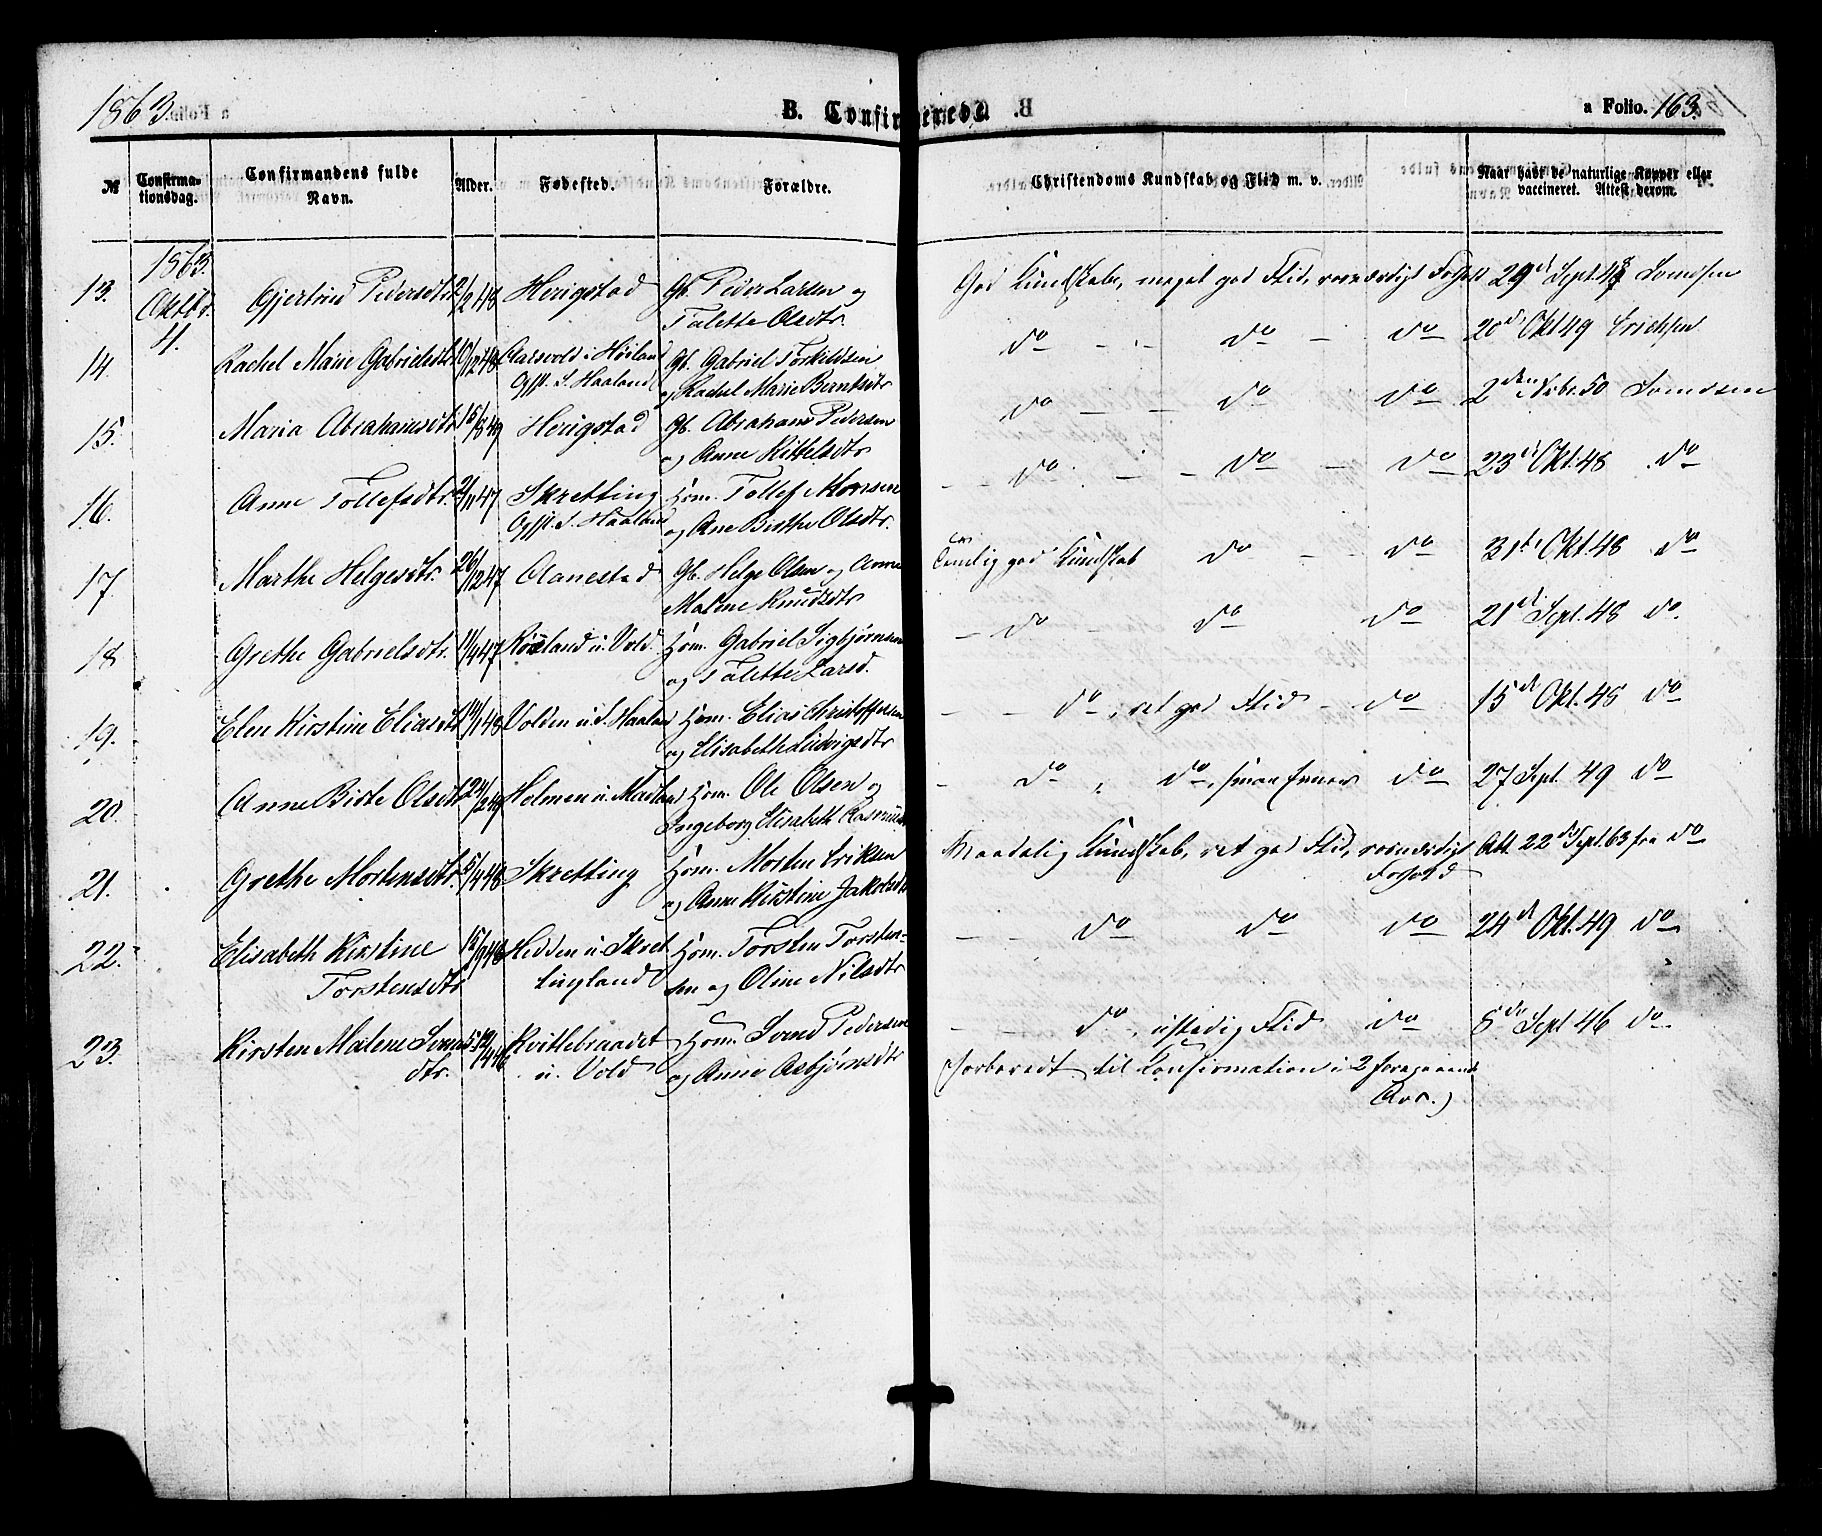 1863.
B. Confirmerede.
a Folio. 163.
№
Confirma-
tionsdag.
Confirmandens fulde
Navn.
Alder.
Fødested.
Forældre.
Christendoms Kundskab og Flid m. v.
Naar havt de naturlige Kopper eller
vaccineret. Attest derom.
1863.
Oktbr
4.
13. Gjertrud Pedersdtr 2/2 48 Herigstad Gb. Peder Larsen og
Talette Olsdtr.
God Kundskab, meget god Flid, roesværdigt Forhold 29d Sept. 48
14. Rachel Marie Gabrielsdtr 10/12 48 Aarsvold i Høiland Gb. Gabriel Torkildsen
Opf. S. Haaland og Rachel Marie Berntsdtr
do - do - do 20d Okt 49 Erichsen
15. Maria Abrahamsdtr 15/8 49 Herigstad Gb. Abraham Pedersen
og Anne Kittelsdtr
do - do do 2den Nvbr. 50
16. Anne Tollefsdtr. 2/11 47 Skretting Hom. Tollef Monsen
Opf. S. Haaland og Ane Birthe Olsdtr.
- do - do - do 23d Okt. 48 do
17. Marthe Helgesdtr. 26/12 47 Aanestad Gb. Helge Olsen og Anne
Malene Knudsdtr
Temlig god Kundskab do - do 31te Okt. 48 do
18 Grethe Gabrielsdtr. 11/4 47 Røisland u. Vold. Hom. Gabriel Sigbjørnsen
og Talette Larsd.
- do - do do 21d Sept. 48 do.
19. Elen Kirstine Eliasdtr 14/1 48 Volden u. S. Haaland Hom. Elias Christoffersen
og Elisabeth Ludvigsdtr
- - do, ret god Flid - do 15d Okt. 48 do
20. Anne Birte Olsdtr 24/2 49 Holmen u. Madland Hom. Ole Olsen og
Ingeborg Elisabeth Rasmusdtr
- do, do, smaa Evner do 27 Sept. 49 do
21. Grethe Mortensdtr. 5/4 48 Skretting Hom. Morten Eriksen
og Anne Kirstine Jakobsdtr
Maadelig Kundskab, ret god Flid, roesværdigt Att. 22de Sept. 63 fra do
Forhold
22. Elisabeth Kirstine 15/9 48 Hedden u. Skret Hom. Torsten Torsten-
Torstensdtr tingland sen og Oline Nilsdtr
- - do do do 24d Okt. 49 do
23. Kirsten Malene Svens 12/4 46 Kvitlebraadet Hom. Svend Pedersen
dtr. u. Vold og Anne Asbjørnsdtr
- - do, ustadig Flid do 8de Sept 46 do.
(forberedt til Confirmation i 2 foregaaende
Aar.)